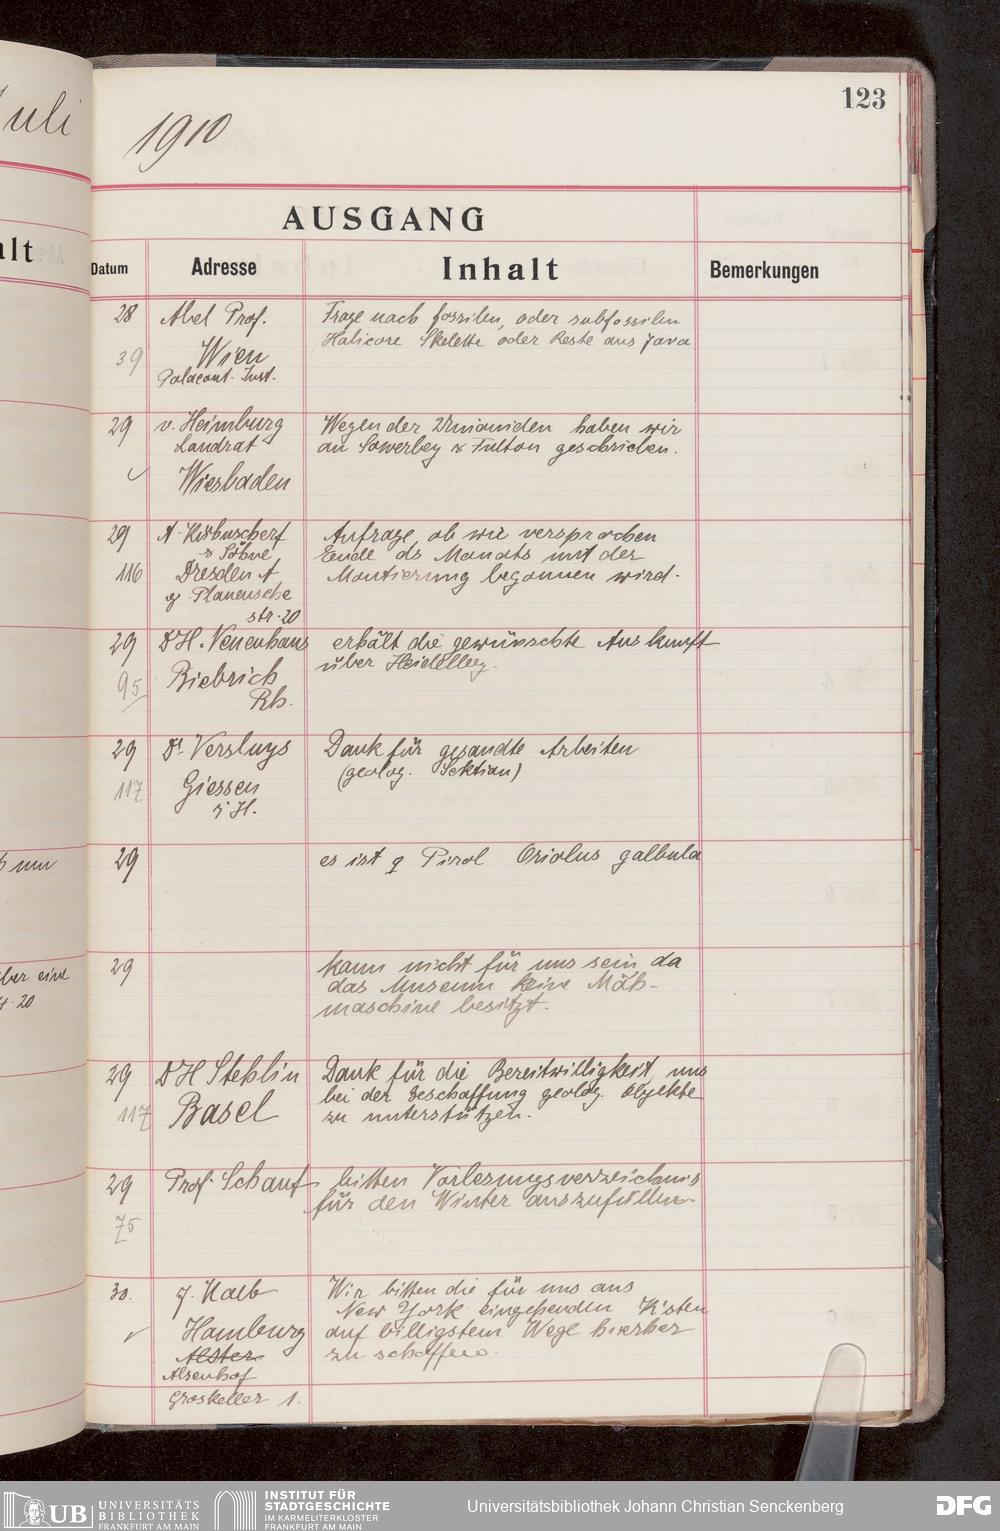 Juli
alt
b nun
ber eine
20
123
1910
AUSGANG
Datum Adresse Inhalt Bemerkungen
28 Abel Prof. Frage nach fossilen, oder subfossilen
Halicore Skelette oder Reste aus Java
39 Wien
Palaeont. Inst.
29 v. Heimburg Wegen der Unioniden haben wir
Landrat an Sowerby & Fulton geschrieben.
Wiesbaden
29 A. Anfrage, ob wie versprochen
& Söhne Ende ds Monats mit der
116 Dresden A Montierung begonnen wird.
g Plauensche
str. 20
29 Dr H. Neuenhaus erhält die gewünschte Auskunft
über Heidelberg.
95 Biebrich
Rh.
29 Dr. Versluys Dank für gesandte Arbeiten
(geolog. Sektion)
117 Giessen
i. H.
29 es ist g Pirol Oriolus galbula
29 kann nicht für uns sein da
das Museum keine Mäh-
maschine besitzt.
29 Dr H Stehlin Dank für die Bereitwilligkeit, uns
bei der Beschaffung geolog. Objekte
117 Basel zu unterstützen.
29 Prof. Schauf bitten Vorlesungsverzeichnis
für den Winter auszufüllen.
75
30. J. Kalb Wir bitten die für uns aus
New York eingehenden Kisten
Hamburg auf billigstem Wege hierher
Alster zu schaffen.
Alsenhof
Groskeller 1.
UB UNIVERSITÄTS
BIBLIOTHEK
FRANKFURT AM MAIN
INSTITUT FÜR
STADTGESCHICHTE
IM KARMELITERKLOSTER
FRANKFURT AM MAIN
Universitätsbibliothek Johann Christian Senckenberg
DFG